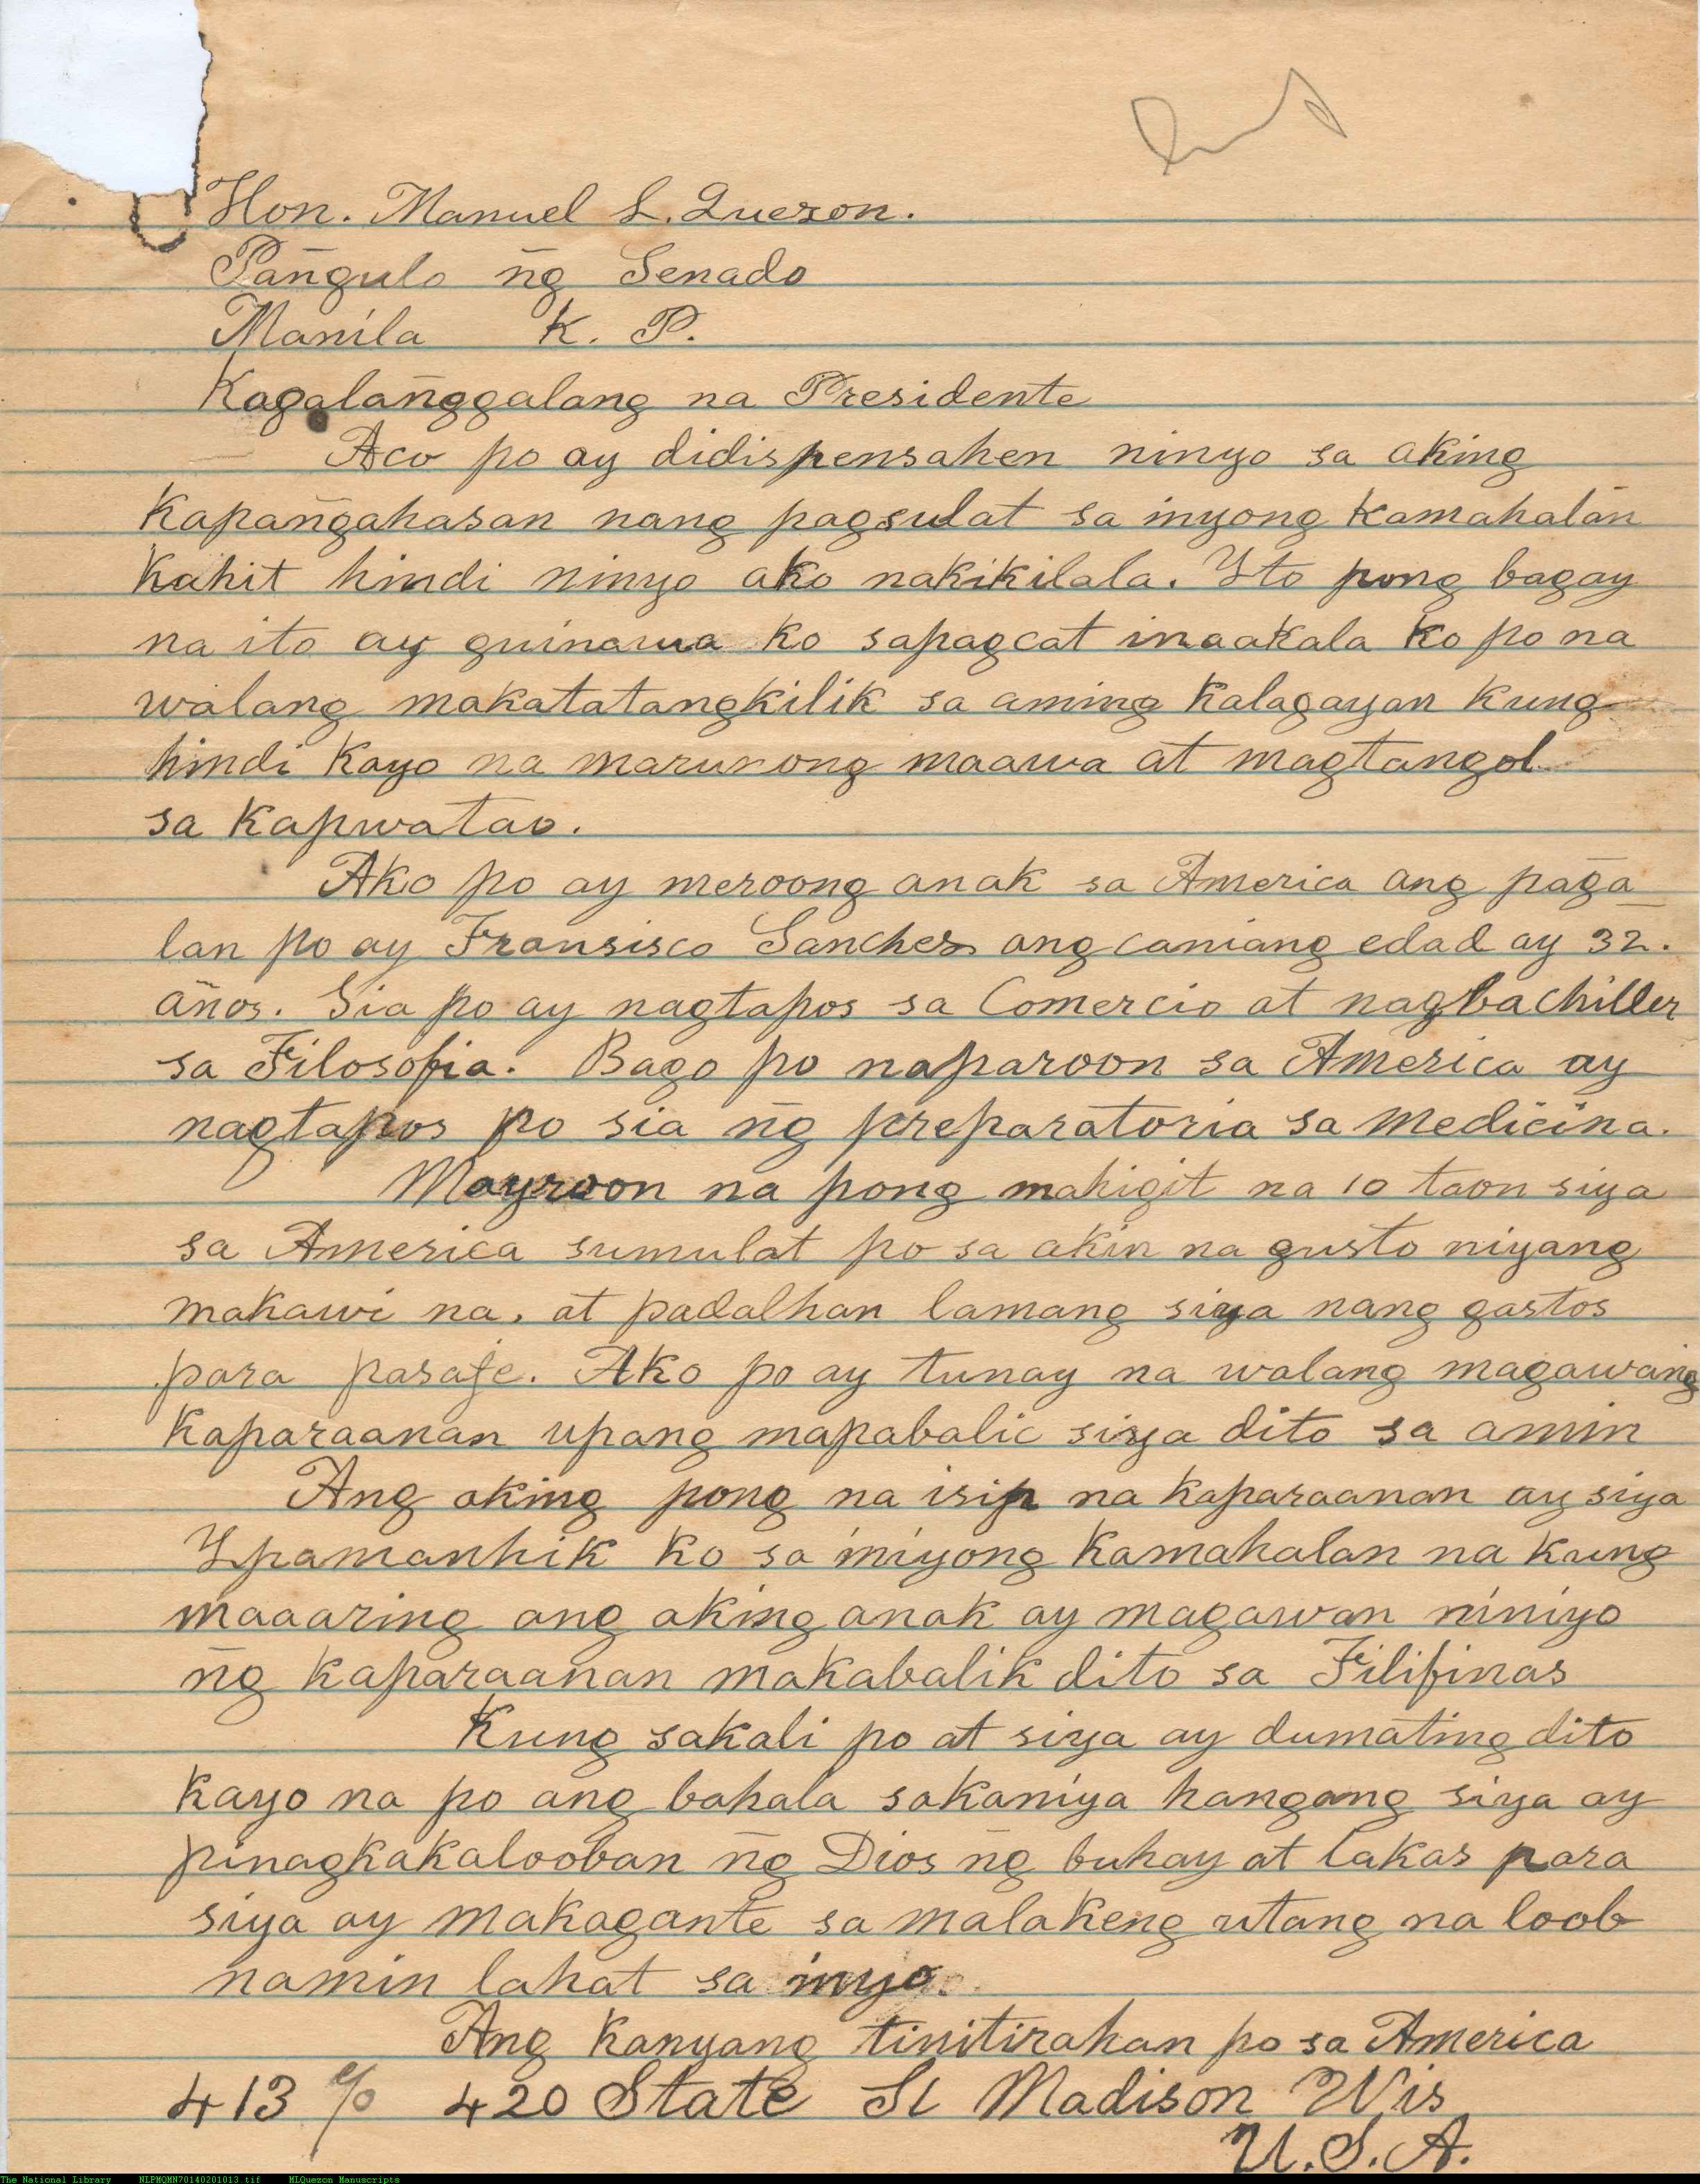 Hon. Manuel L. Quezon.
Pan̄gulo n̄g Senado
Manila K. P.
Kagalan̄ggalang na Presidente
Aco po ay didispensahen ninyo sa aking
Kapan̄gahasan nang pagsulat sa inyong kamahalan
kahit hindi ninyo ako nakikilala. Yto pong bagay
na ito ay guinawa ko sapagcat inaakala ko po na
walang makatatangkilik sa aming kalagayan kung
hindi kayo na marunong maawa at magtangol
sa kapwatao.
Ako po ay meroong anak sa America ang pag̃a
lan po ay Fransisco Sanchez ang caniang edad ay 32.
años. Sia po ay nagtapos sa Comercio at nagbachiller
sa Filosofia. Bago po naparoon sa America ay
nagtapos po sia n̄g preparatoria sa medicina.
Mayroon na pong mahigit na 10 taon siya
sa America sumulat po sa akin na gusto niyang
makawi na, at padalhan lamang siya nang gastos
para pasaje. Ako po ay tunay na walang magawang
kaparaanan upang mapabalic siya dito sa amin
Ang aking pong na isip na kaparaanan ay siya
Ypamanhik ko sa iniyong kamahalan na kung
maaaring ang aking anak ay magawan niniyo
n̄g kaparaanan makabalik dito sa Filifinas
Kung sakali po at siya ay dumating dito
kayo na po ang bahala sakaniya hangang siya ay
pinagkakalooban n̄g Dios n̄g buhay at lakas para
siya ay makagante sa malakeng utang na loob
namin lahat sa inyo.
Ang kanyang tinitirahan po sa America
413 % 420 State St Madison Wis
U.S.A.
The National Library NLPMQMN70140201013.tif MLQuezon Manuscripts